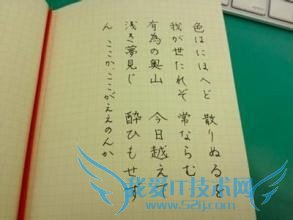 色はにほへど 散りぬるを
我が世たれぞ 常ならむ
有為の奥山 今日越えて
浅き夢見じ 酔ひもせず
ん ここか、ここがええのんか
我爱IT技术网